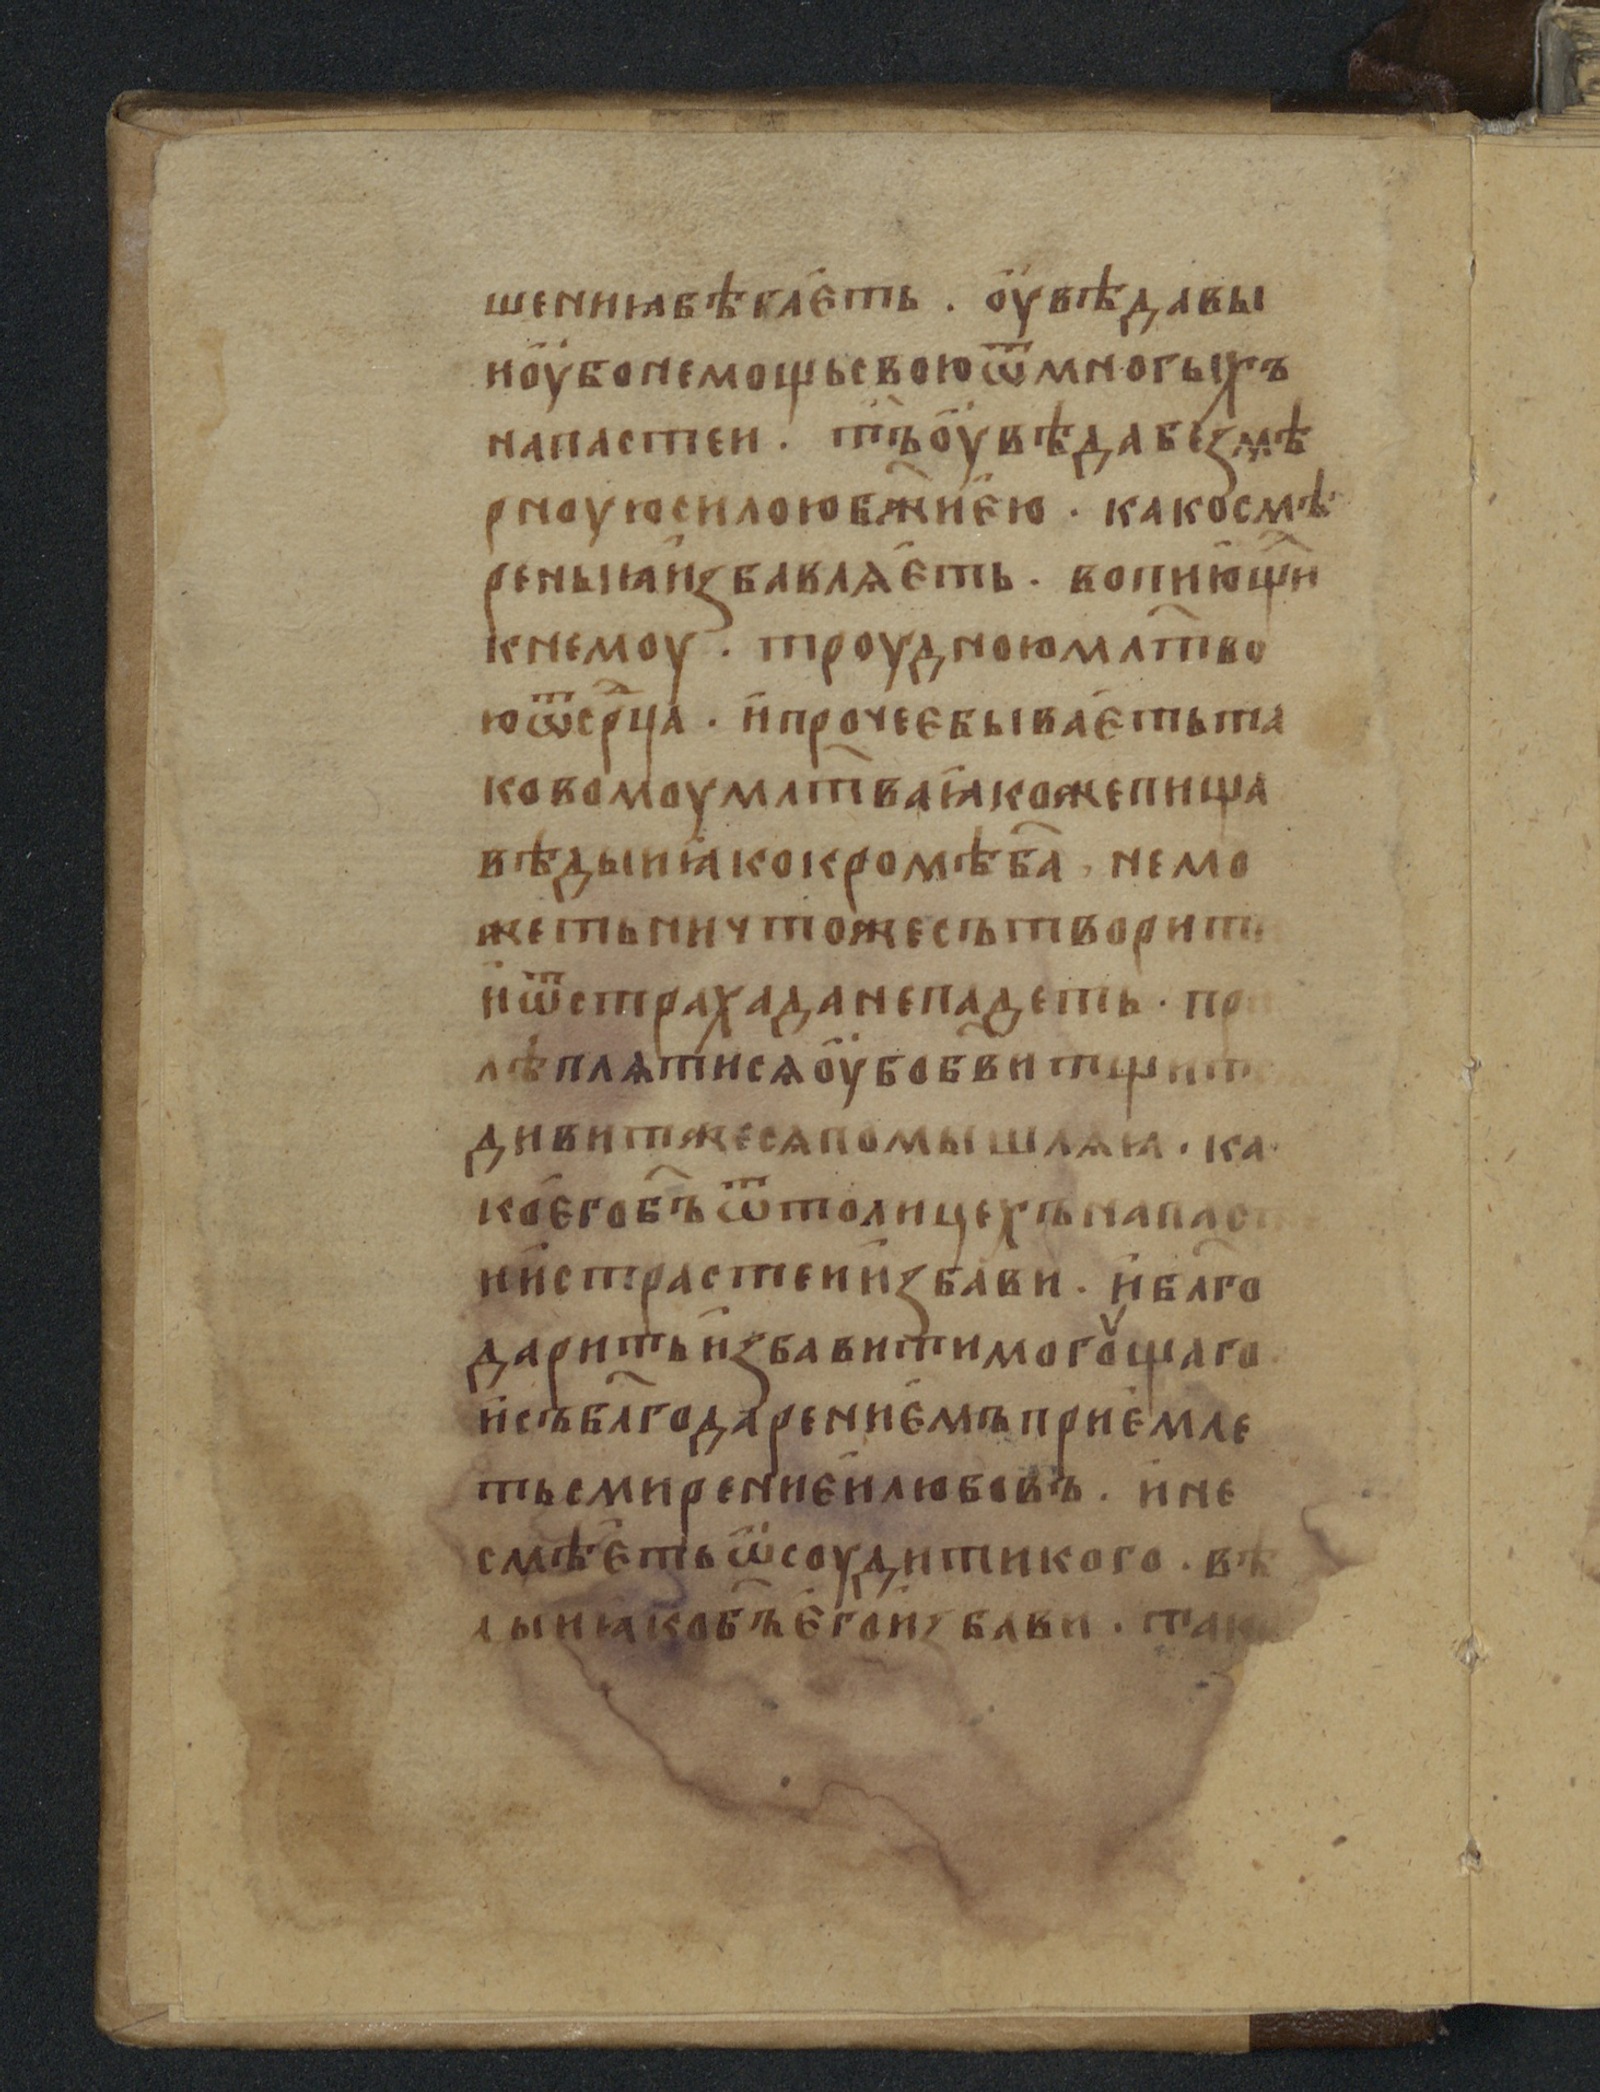 шениꙗвѣваѥть . оувѣдавы
ноубонемощьсвоюѿмногыхъ
напастеи . тъоувѣдабезмѣ
рноуюсилоюбж҃иѥю . какосмѣ
реныꙗизбавлѧѥть . вопиющи
кнемоу . троудноюмлт҃во
юѿср҃ца . ипрочеѥбываѥтьта
ковомоумлт҃ваꙗкожепиша
вѣдыиꙗкокромѣб҃а . немо
жетьничтожесътворити
иѿстрахаданепадеть .
лѣплѧтисѧоубоб҃ви
дивитжесѧпомышлѧꙗ . ка
коѥгоб҃ъѿтолицехънапаст
иистрастеиизбави . ибл҃го
даритьизбавитимогоущаго
исъбл҃годарениѥмъприѥмле
тьсмирениѥилюбовъ . ине
смѣѥтьѿсоудитикого . вѣ
дыиꙗкоб҃ъѥгоизбави . так